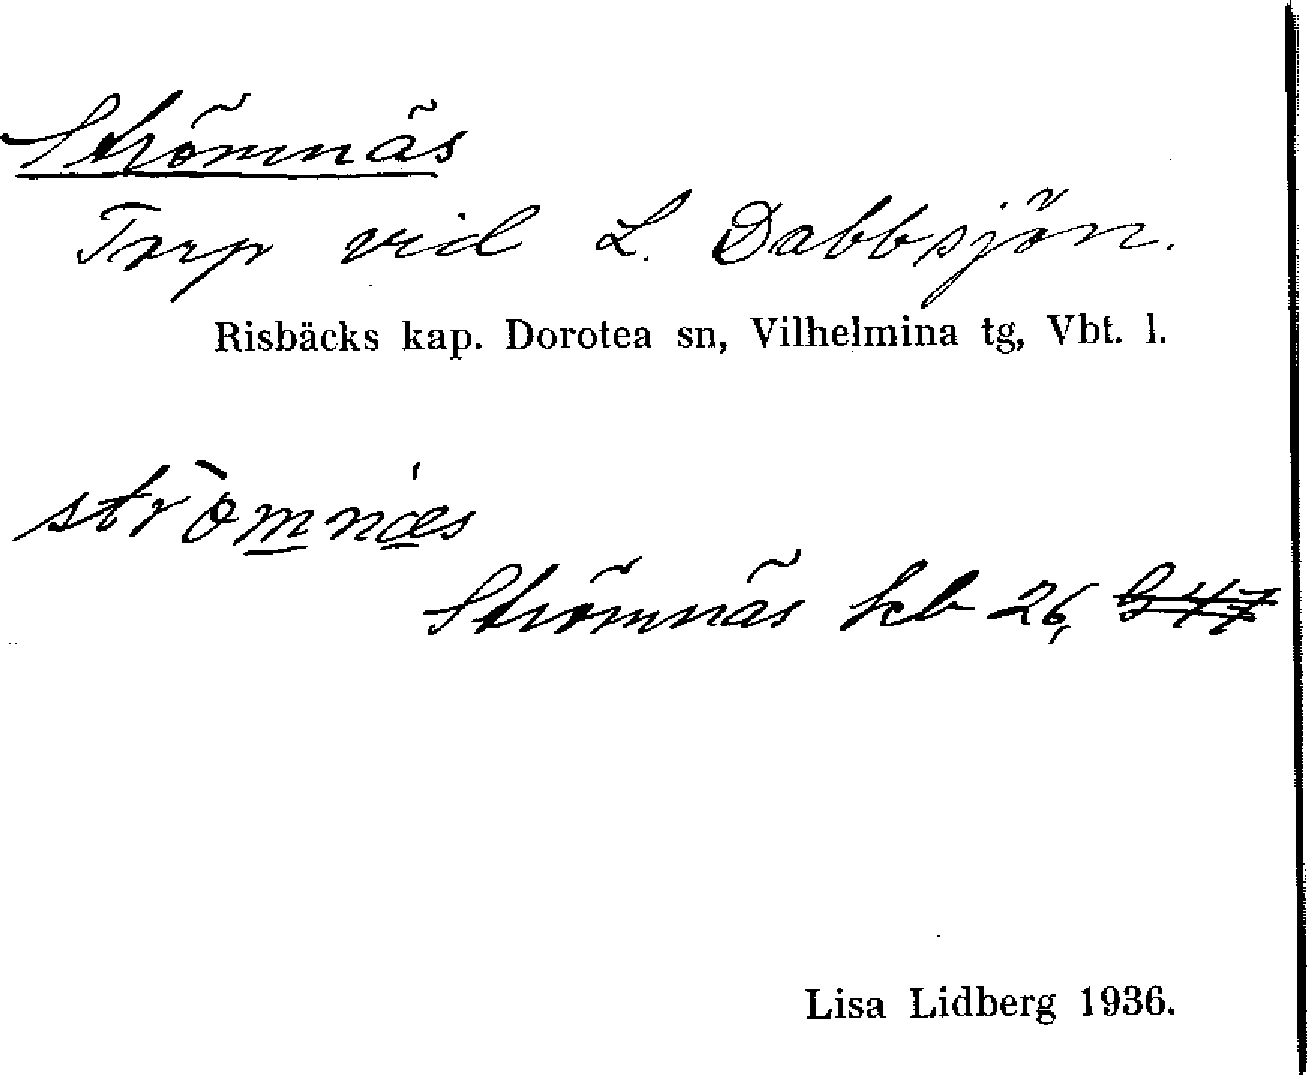 Strömnäs
Torp vid L. Dabbsjön.
Risbäcks kap. Dorotea sn, Vilhelmina tg, Vbt. l.
stròmnǽs
Strömnäs kb 26,
Lisa Lidberg 1936.